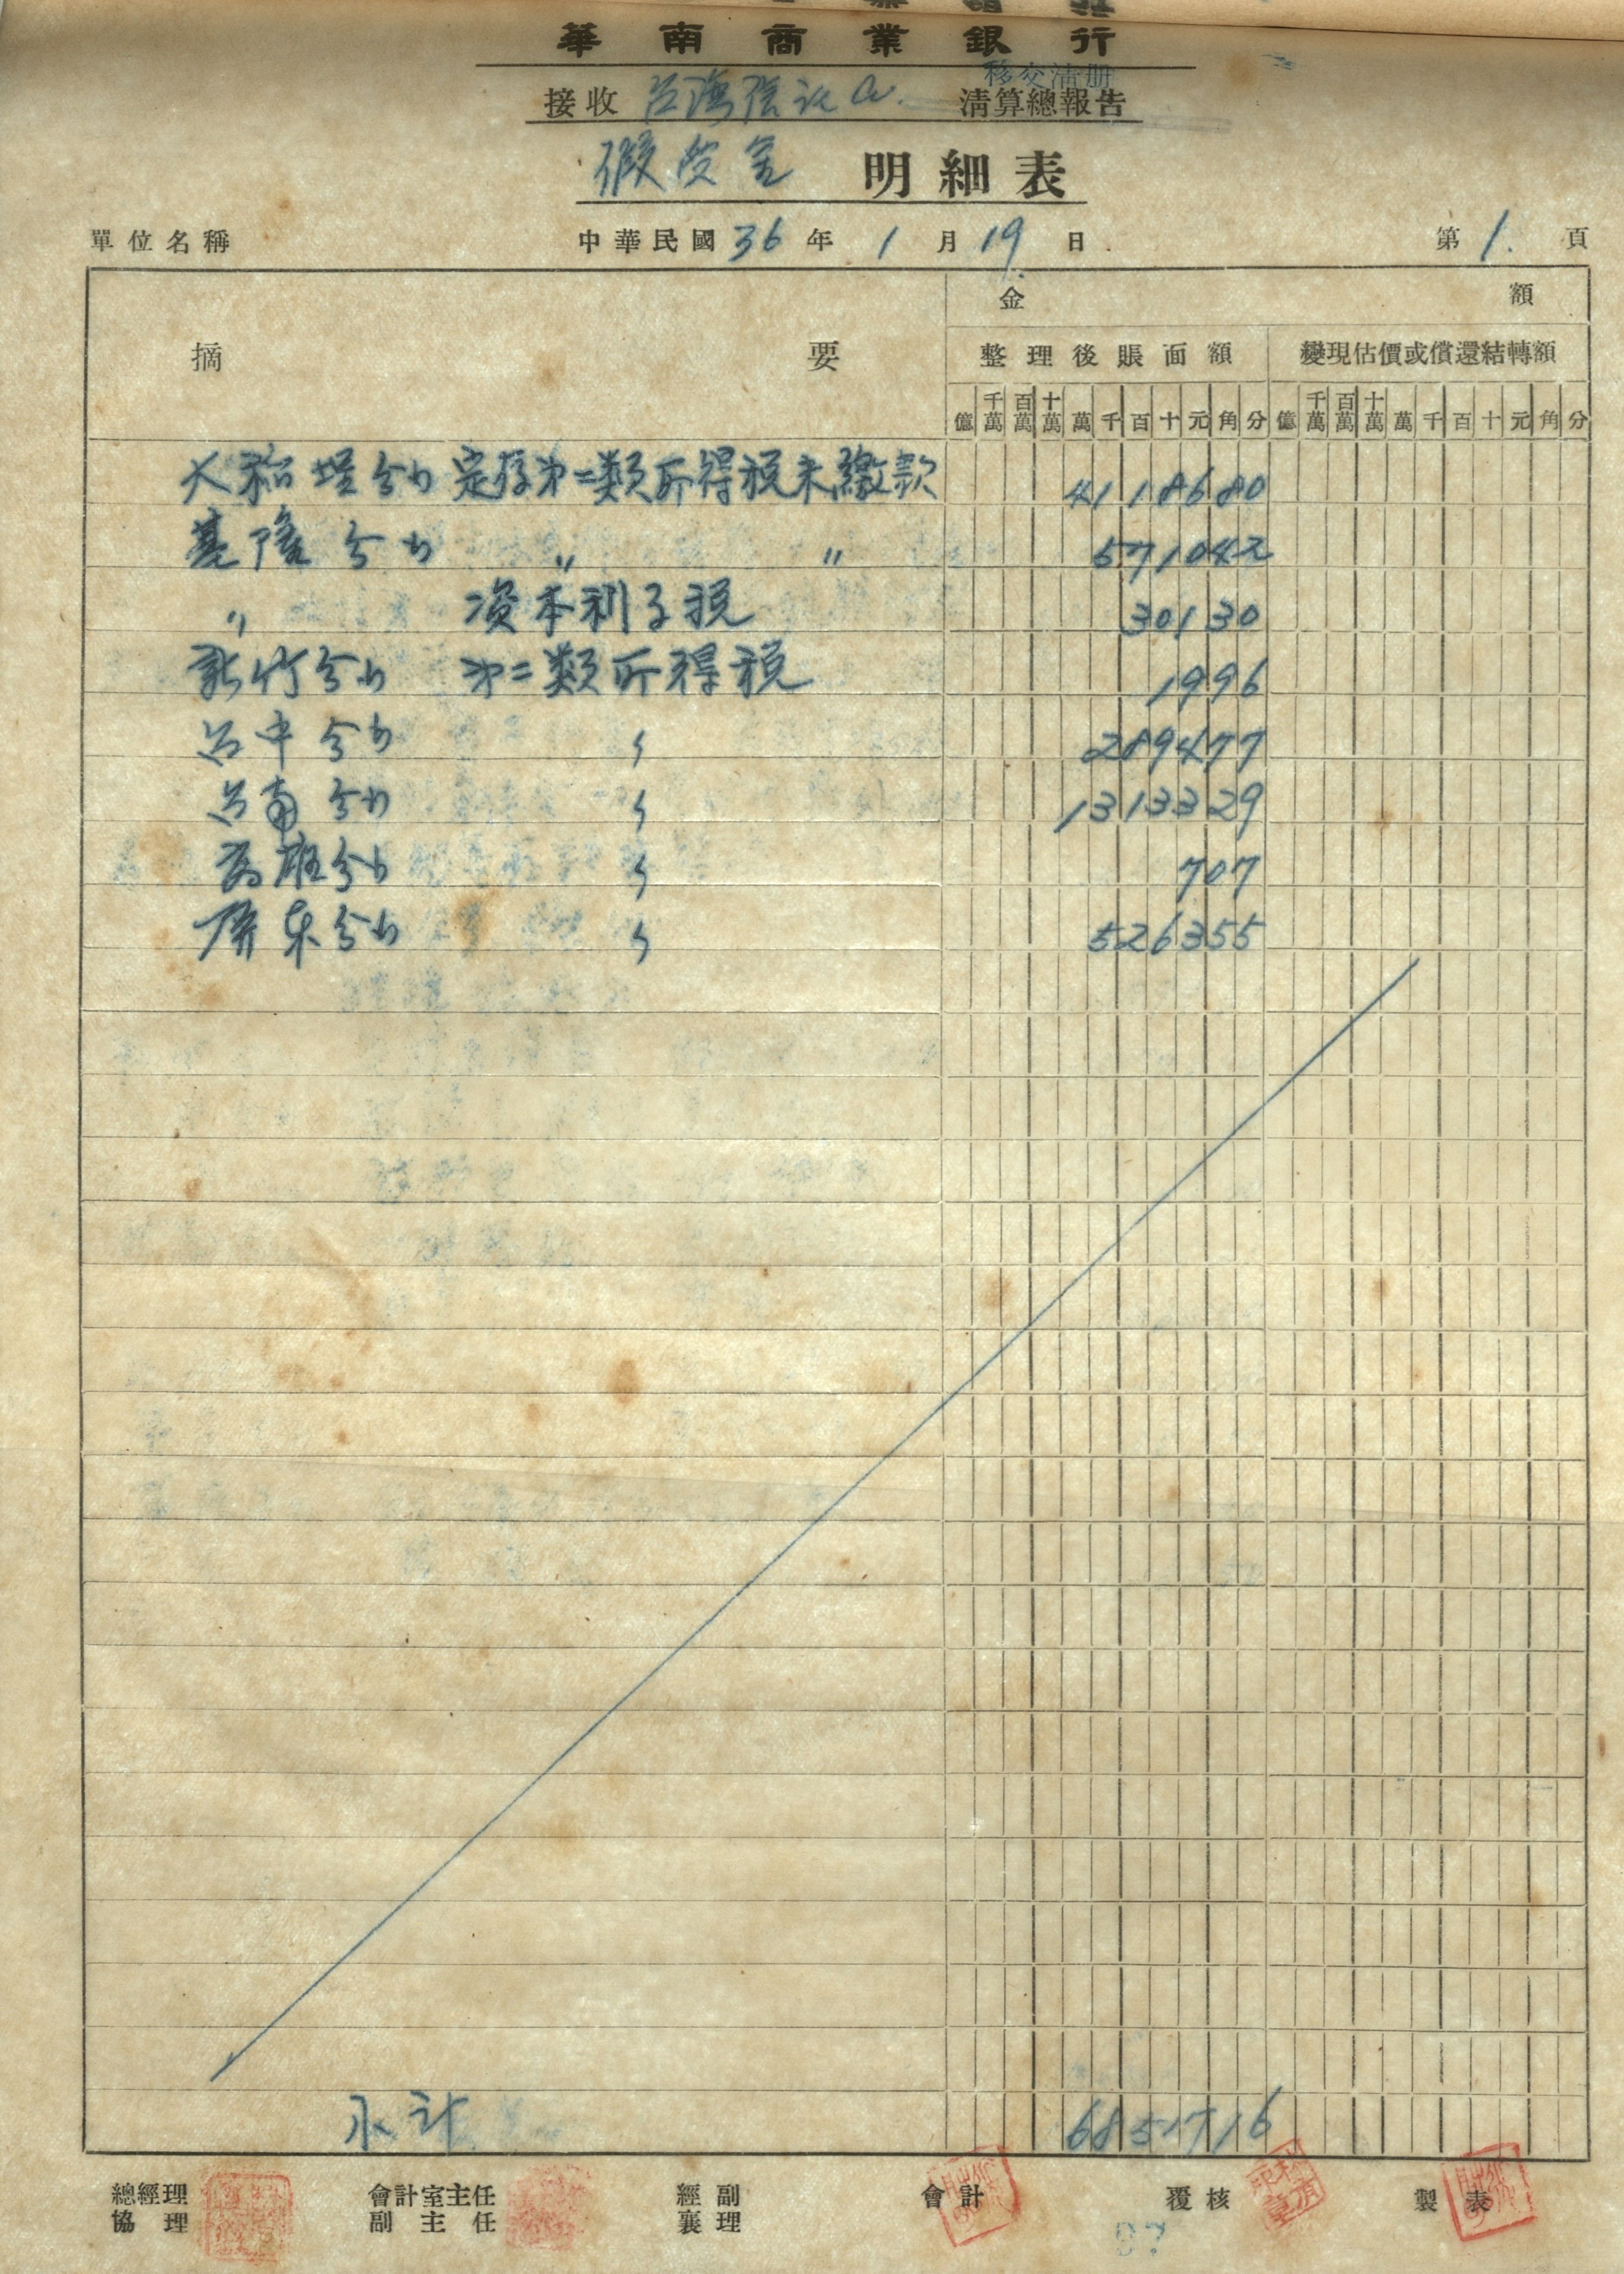 華南商業銀行
移交清册
接收 台湾信託 清算總報告
假受金 明細表
單位名稱 中華民國36年1月19日 第1.頁
摘要 金額
整理後賬面額 變現估價或償還結轉額
億 千萬 百萬 十萬 萬 千 百 十 元 角 分 億 千萬 百萬 十萬 萬 千 百 十 元 角 分
大稻埕分 定存第二類所得税未繳款 4118680
基隆分 〃 〃 571042
〃 资本利子税 30130
新竹分 第二類所得税 1996
台中分 〃 289477
台南分 〃 1313329
高雄分 〃 707
屏東分 〃 526355
小計 6851716
總經理 會計室主任 經副 會計 覆核 製表
協理 副主任 襄理
97